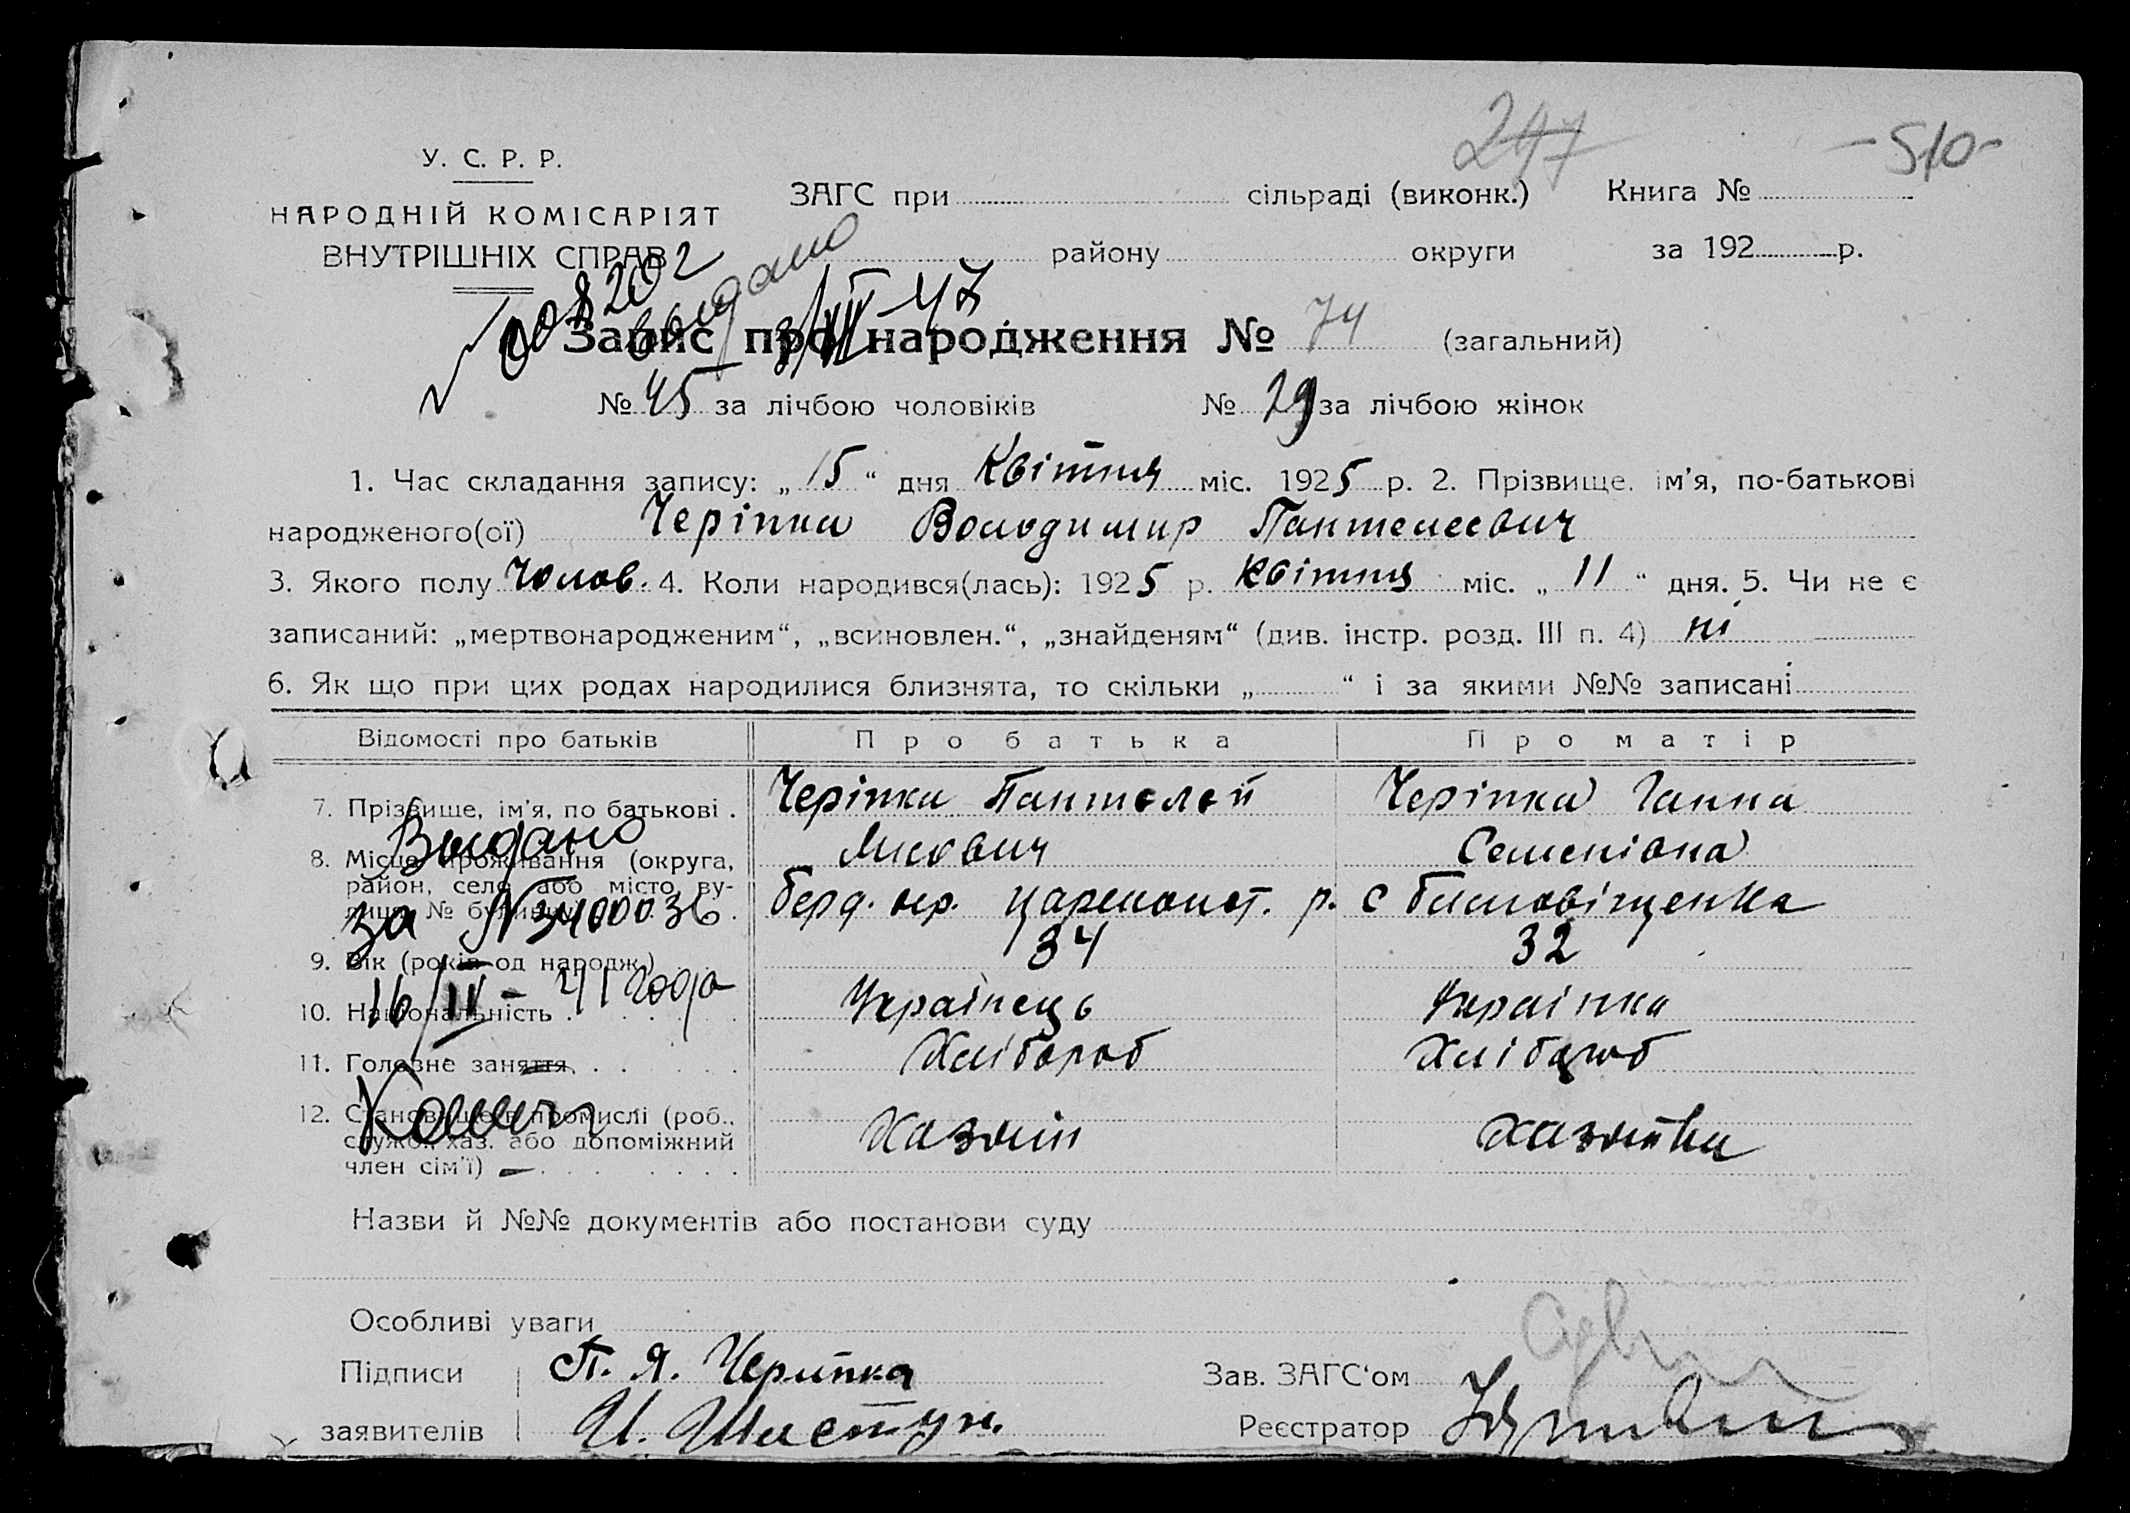 247
- 510 -
У. С. Р. Р.
НАРОДНІЙ КОМІСАРІЯТ
ВНУТРІШНІХ СПРАВ
ЗАГС при сільраді (виконк.) Книга №
району округи за 192 р.
008202
выдано 3/VII 47
Запис про народження № 74 (загальний)
№ 45 за лічбою чоловіків № 29 за лічбою жінок
1. Час складання запису: „ 15 “ дня Квітня міс. 1925 р. 2. Прізвище, ім'я, по-батькові
народженого(ої) Черіпка Володимир Пантелеєвич
3. Якого полу Чолов. 4. Коли народився(лась): 1925 р. Квітня міс. „ 11 “ дня. 5. Чи не є
записаний: „мертвонародженим“, „всиновлен.“, „знайденям“ (див. інстр. розд. III п. 4) ні
6. Як що при цих родах народилися близнята, то скільки „ “ і за якими №№ записані
Відомості про батьків Про батька Про матір
7. Прізвище, ім'я, по батькові . Черіпка Пантелей Черіпка Ганна
Якович Семенівна
8. Місце проживання (округа, район, село або місто, вулиця, № будинку) Берд. окр. Царекост. р. с
9. Вік (років од народж.) 34 32
10. Національність . Українець Українка
11. Головне заняття. Хлібороб Хлібороб
12. Становище в промислі (роб., службов., хаз. або допоміжний член сім'ї) Хазяїн Хазяйка
Выдано
за № 3400036
16/IV - 41 года
Назви й №№ документів або постанови суду
Особливі уваги
Підписи П. Я. Черипка Зав. ЗАГС‘ом
заявителів И. Шастун. Реєстратор